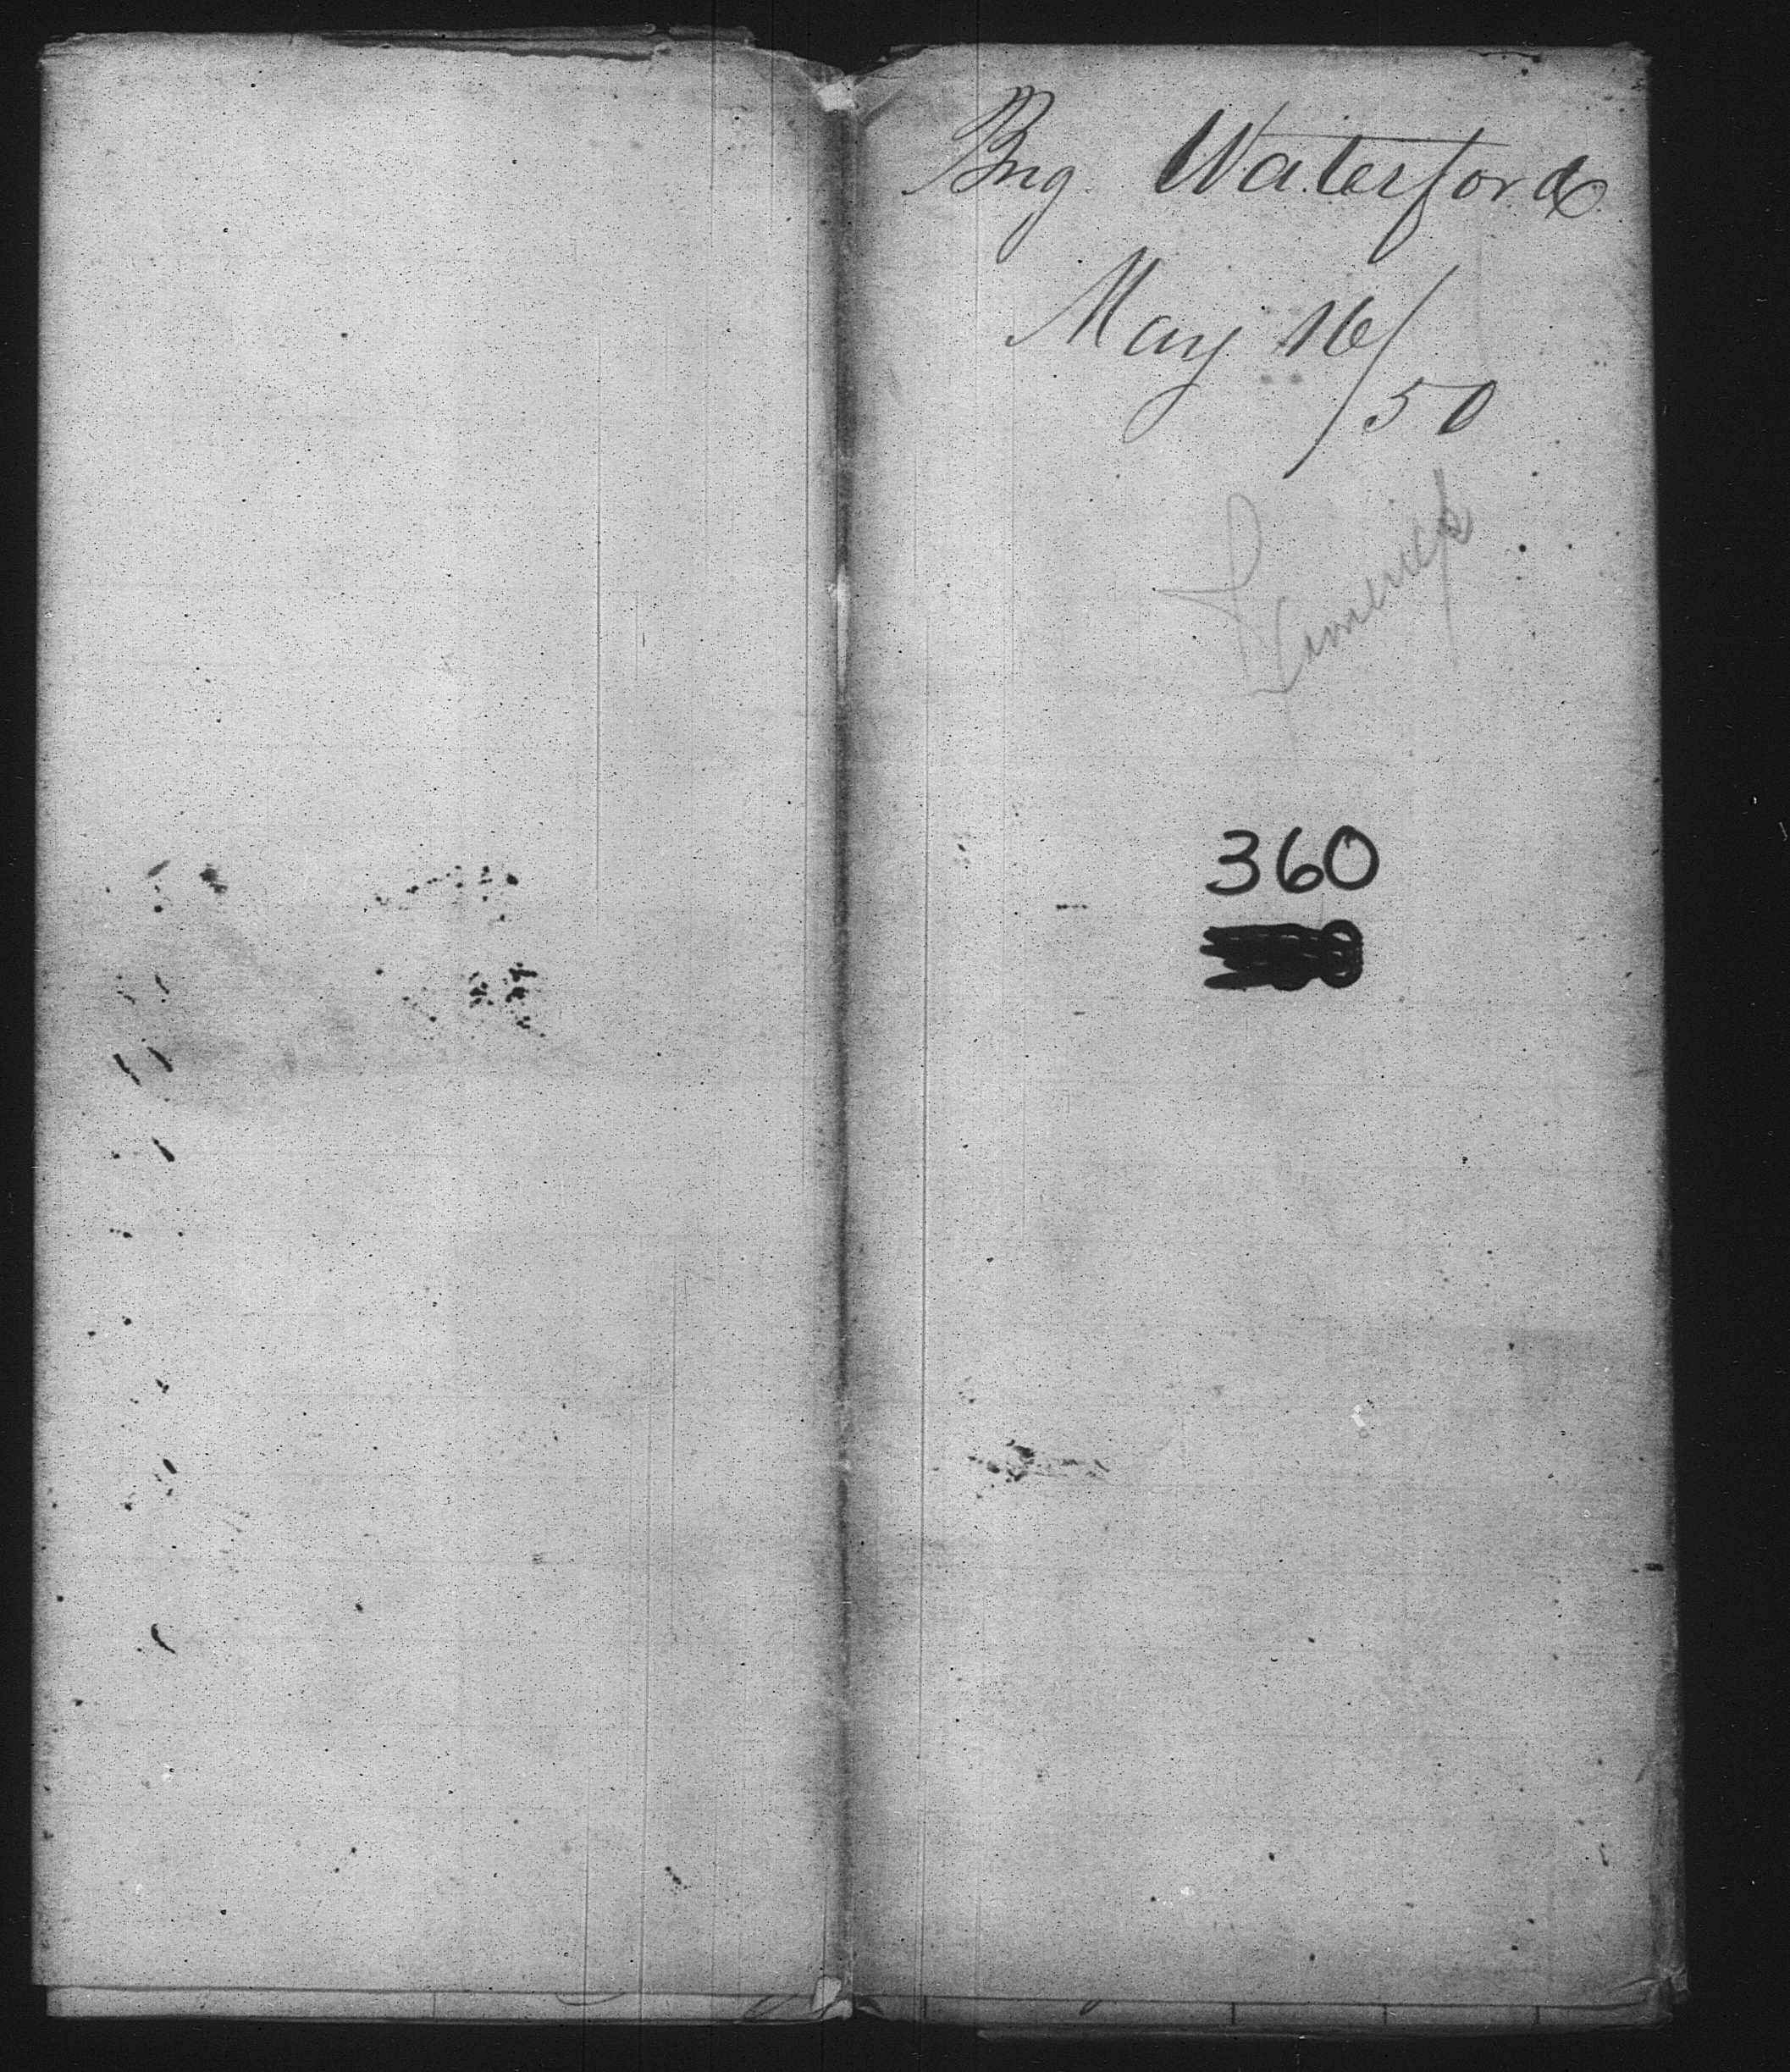 Brig Waterford
May 16/50
Limerick
360